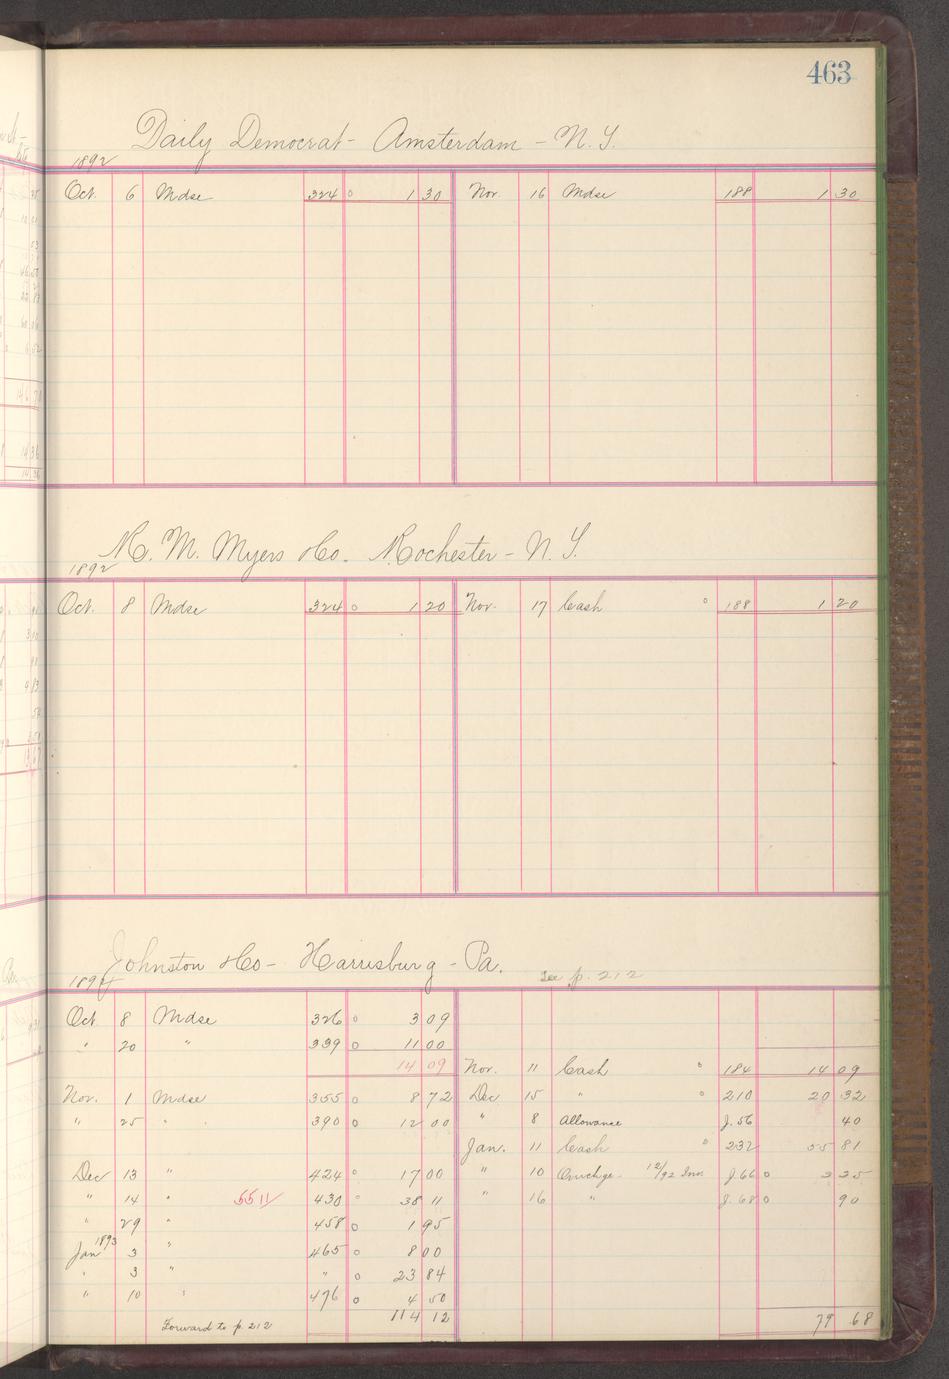 463
Daily Democrat - Amsterdam - N.Y.
1892
Oct. 6 Mdse 324 0 1 30 Nov. 16 Mdse 188 1 30
R. M. Myers & Co. Rochester - N.Y.
1892
Oct. 8 Mdse 324 0 1 20 Nov. 17 Cash 0 188 1 20
Johnston & Co - Harrisburg - Pa. See p. 212
1892
Oct 8 Mdse 326 0 3 09
" 20 " 339 0 11 00
14 09 Nov. 11 Cash 0 184 14 09
Nov. 1 Mdse 355 0 8 72 Dec 15 " 0 210 20 32
" 25 " 390 0 12 00 " 8 Allowance J. 56 40
Jan. 11 Cash 0 232 55 81
Dec 13 " 424 0 17 00 " 10 12/92 Inv. J. 66 0 2 25
" 14 " 55 11 430 0 38 11 " 16 " J. 68 0 90
" 29 " 458 0 1 95
1893
Jan 3 " 465 0 8 00
" 3 " " 0 23 84
" 10 " 476 0 4 50
114 12
Forward to p. 212 79 68